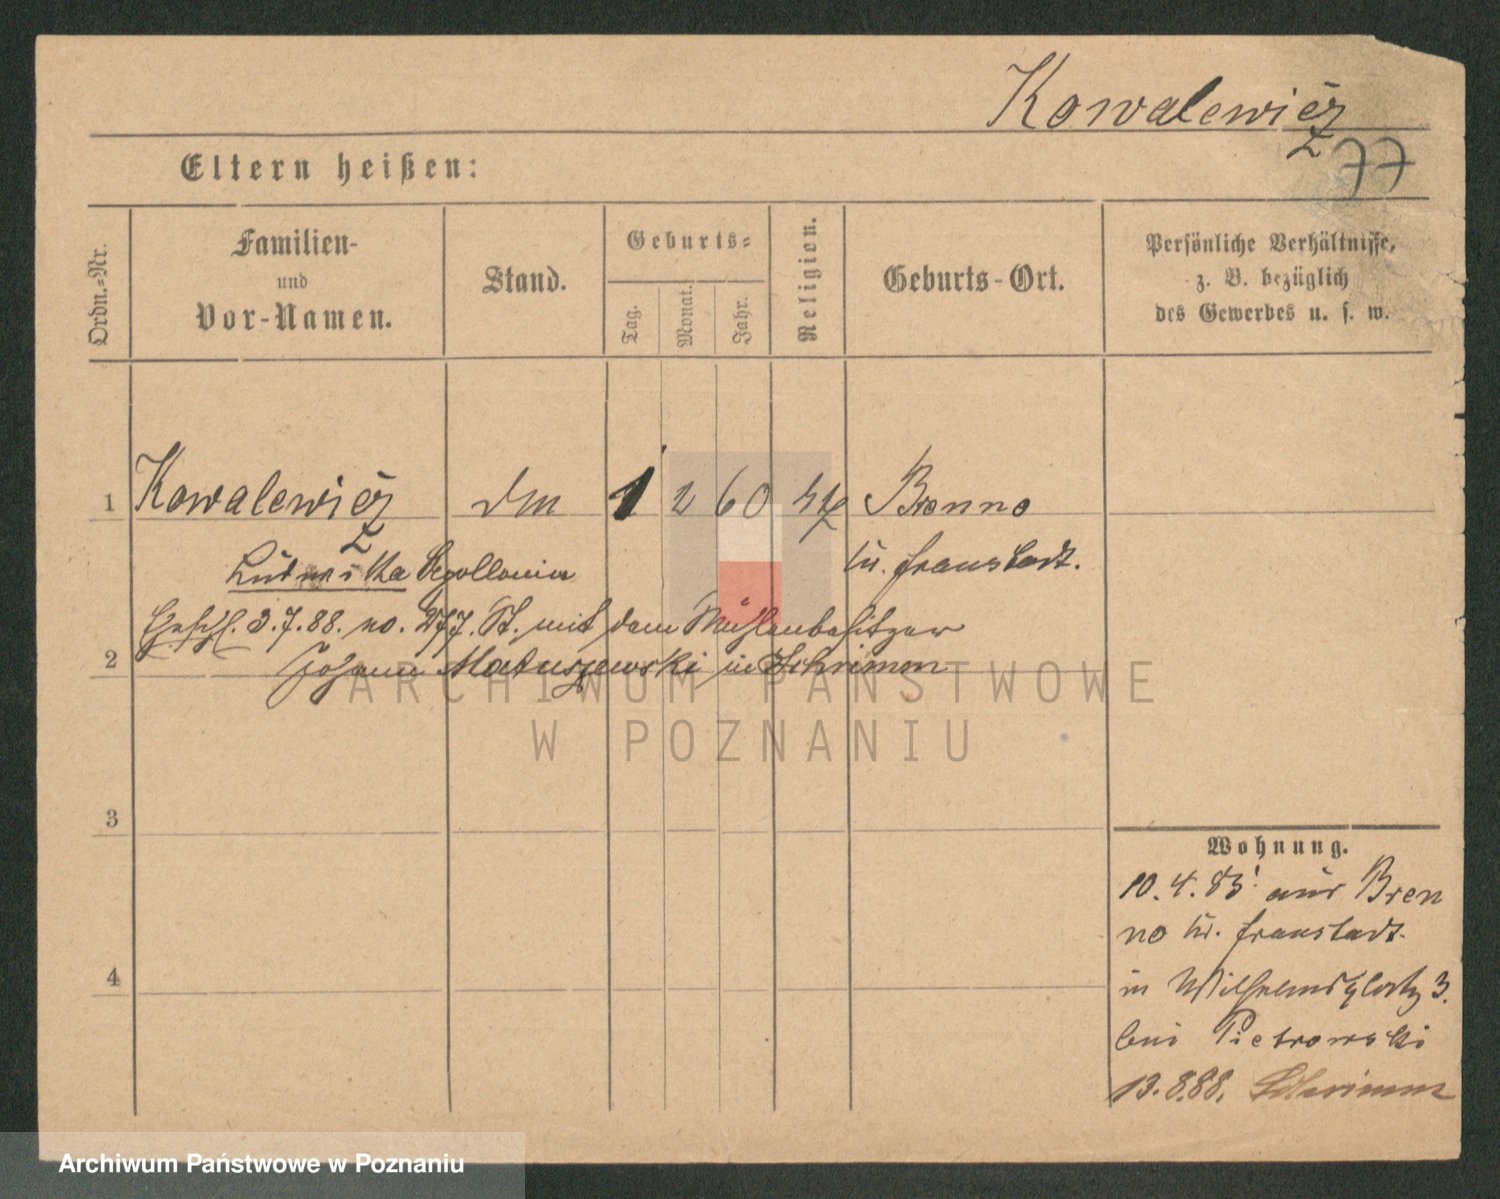 Kowalewicz
77
Eltern heißen:
Ordn.-Nr.
Familien-
und
Vor-Namen.
Stand.
Geburts-
Tag.
Monat.
Jahr.
Religion.
Geburts-Ort.
Persönliche Verhältnisse,
z. B. bezüglich
des Gewerbes u. s. w.
1 Kowalewicz 1 2 60 kth Brenno
Ludwika Apollonia Kr. Fraustadt.
Geschl. 3.7.88. no. 277. St. mit dem Mühlenbesitzer
2 Johann Matuszewski in Schrimm
ARCHIWUM PAŃSTWOWE
W POZNANIU
3
4
Wohnung.
10.4.85 aus Bren
no Kr. Fraustadt.
in Wilhelmsplatz 3.
bei Pietrowski
13.8.88. Schrimm
Archiwum Państwowe w Poznaniu